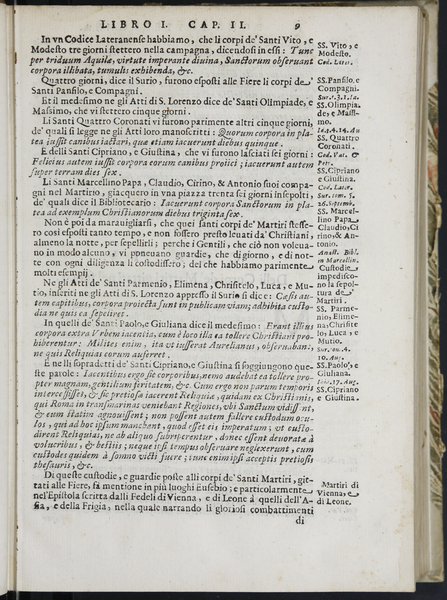 LIBRO I. CAP. II. 9
In vn Codice Lateranense habbiamo, che li corpi de' Santi Vito, e
Modesto tre giorni stettero nella campagna, dicendosi in essi: Tunc
per triduum Aquilæ, virtute imperante diuina, Sanctorum obseruant
corpora illibata, tumulis exhibenda, &c.
Quattro giorni, dice il Surio, furono esposti alle Fiere li corpi de'
Santi Panfilo, e Compagni.
Et il medesimo ne gli Atti di S. Lorenzo dice de' Santi Olimpiade, e
Massimo, che vi stettero cinque giorni.
Li Santi Quattro Coronati vi furono parimente altri cinque giorni,
de' quali si legge ne gli Atti loro manoscritti: Quorum corpora in pla-
tea iussit canibus iactari, quæ etiam iacuerunt diebus quinque.
E delli Santi Cipriano, e Giustina, che vi furono lasciati sei giorni:
Felicius autem iussit corpora eorum canibus proijci; iacuerunt autem
super terram dies sex.
Li Santi Marcellino Papa, Claudio, Cirino, & Antonio suoi compa-
gni nel Martirio, giacquero in vna piazza trenta sei giorni insepolti,
de' quali dice il Bibliotecario: Iacuerunt corpora Sanctorum in pla-
tea ad exemplum Christianorum diebus triginta sex.
Non è poi da marauigliarsi, che questi santi corpi de' Martiri stesse-
ro così esposti tanto tempo, e non fossero presto leuati da' Christiani,
almeno la notte, per sepellirli; perche i Gentili, che ciò non voleua-
no in modo alcuno, vi poneuano guardie, che di giorno, e di not-
te con ogni diligenza li custodissero; del che habbiamo parimente
molti esempij.
Ne gli Atti de' Santi Parmenio, Elimena, Chrisitelo, Luca, e Mu-
tio, inseriti ne gli Atti di S. Lorenzo appresso il Surio si dice: Cæsis au-
tem capitibus, corpora proiecta sunt in publicam viam; adhibita custo-
dia ne quis ea sepeliret.
In quelli de' Santi Paolo, e Giuliana dice il medesimo: Erant illius
corpora extra Vrbem iacentia. cum è loco illa ea tollere Christiani pro-
hiberentur: Milites enim, ita vt iusserat Aurelianus, obseruabant,
ne quis Reliquias eorum auferret.
E nelli sopradetti de' Santi Cipriano, e Giustina si soggiungono que-
ste parole: Iacentibus ergo sic corporibus, nemo audebat ea tollere pro-
pter magnam, gentilium feritatem, &c. Cum ergo non parum temporis
intercessisset, & sic pretiosa iacerent Reliquiæ, quidam ex Christianis,
qui Roma in transmarinas veniebant Regiones, vbi Sanctum vidissent,
& eum statim agnouissent; non possent autem fallere custodum ocu-
los, qui ad hoc ipsum manebant, quod esset eis imperatum; vt custo-
dirent Reliquias, ne ab aliquo subriperentur, donec essent deuoratæ à
volucribus, & bestijs; neque ipsi tempus obseruare neglexerunt, cum
custodes quidem à somno victi fuere; tunc enim ipsi acceptis pretiosis
thesauris, &c.
Di queste custodie, e guardie poste alli corpi de' Santi Martiri, git-
tati alle Fiere, fà mentione in più luoghi Eusebio; e particolarmente
nel'Epistola scritta dalli Fedeli di Vienna, e di Leone à quelli dell'A-
sia, e della Frigia, nella quale narrando li gloriosi combattimenti
di
SS. Vito, e
Modesto.
Cod. Later.
SS. Panfilo, e
Compagni.
SS. Olimpia-
de, e Massi-
mo.
SS. Quattro
Coronati.
SS. Cipriano
e Giustina.
Cod. Later.
SS. Marcel-
lino Papa,
Claudio, Ci
rino, & An-
tonio.
Custodie
impedisco-
no la sepol-
tura de'
Martiri.
SS. Parme-
nio, Elime-
na, Chrisite
lo, Luca e
Mutio.
SS. Paolo, e
Giuliana.
SS. Cipriano
e Giustina.
Martiri di
Vienna, e
di Leone.